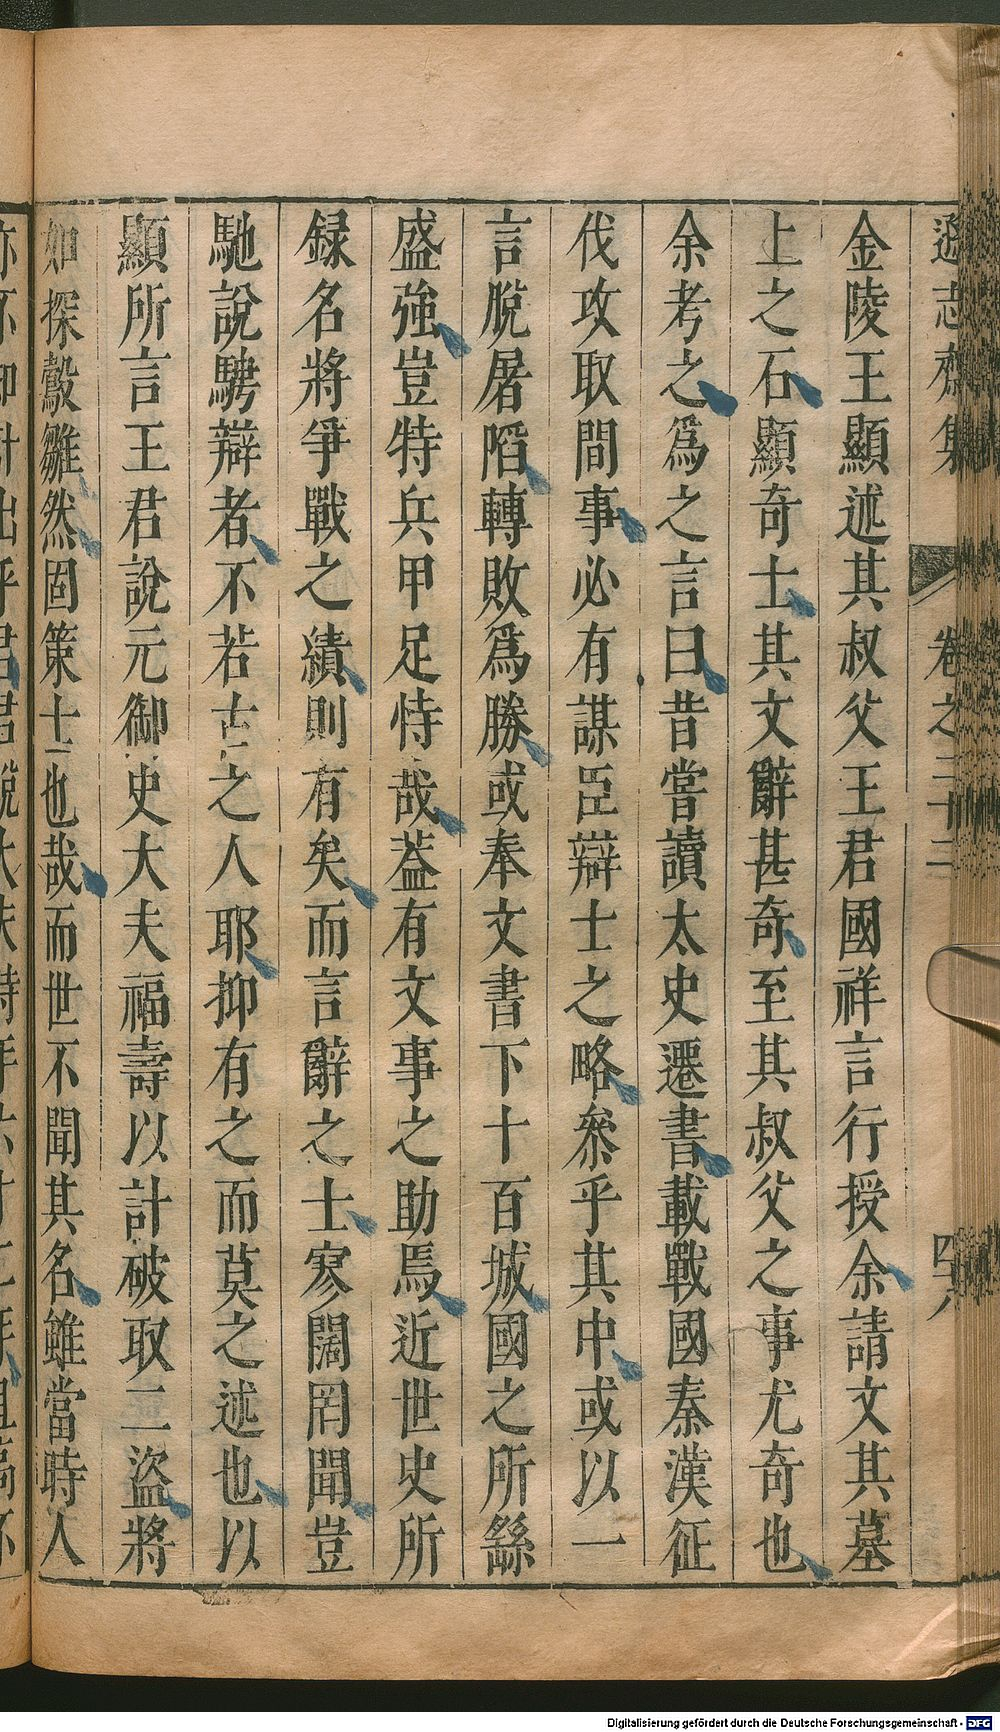 遜志齋集 卷之二十二 四八
金陵王顯述其叔父王君國祥言行授余請文其墓
上之石顯奇士其文辭甚奇至其叔父之事尤奇也
余考之爲之言曰昔嘗讀太史遷書載戰國秦漢征
伐攻取間事必有謀臣辯士之略叅乎其中或以一
言脫屠䧟轉敗爲勝或奉文書下十百城國之所繇
盛強豈特兵甲足恃哉葢有文事之助焉近世史所
録名將爭戰之績則有矣而言辭之士寥闊罔聞豈
馳說騁辯者不若古之人耶抑有之而莫之述也以
顯所言王君說元御史大夫福壽以計破取二盜將
如探鷇雛然固策士也哉而世不聞其名雖當時人
Digitalisierung gefördert durch die Deutsche Forschungsgemeinschaft - DFG